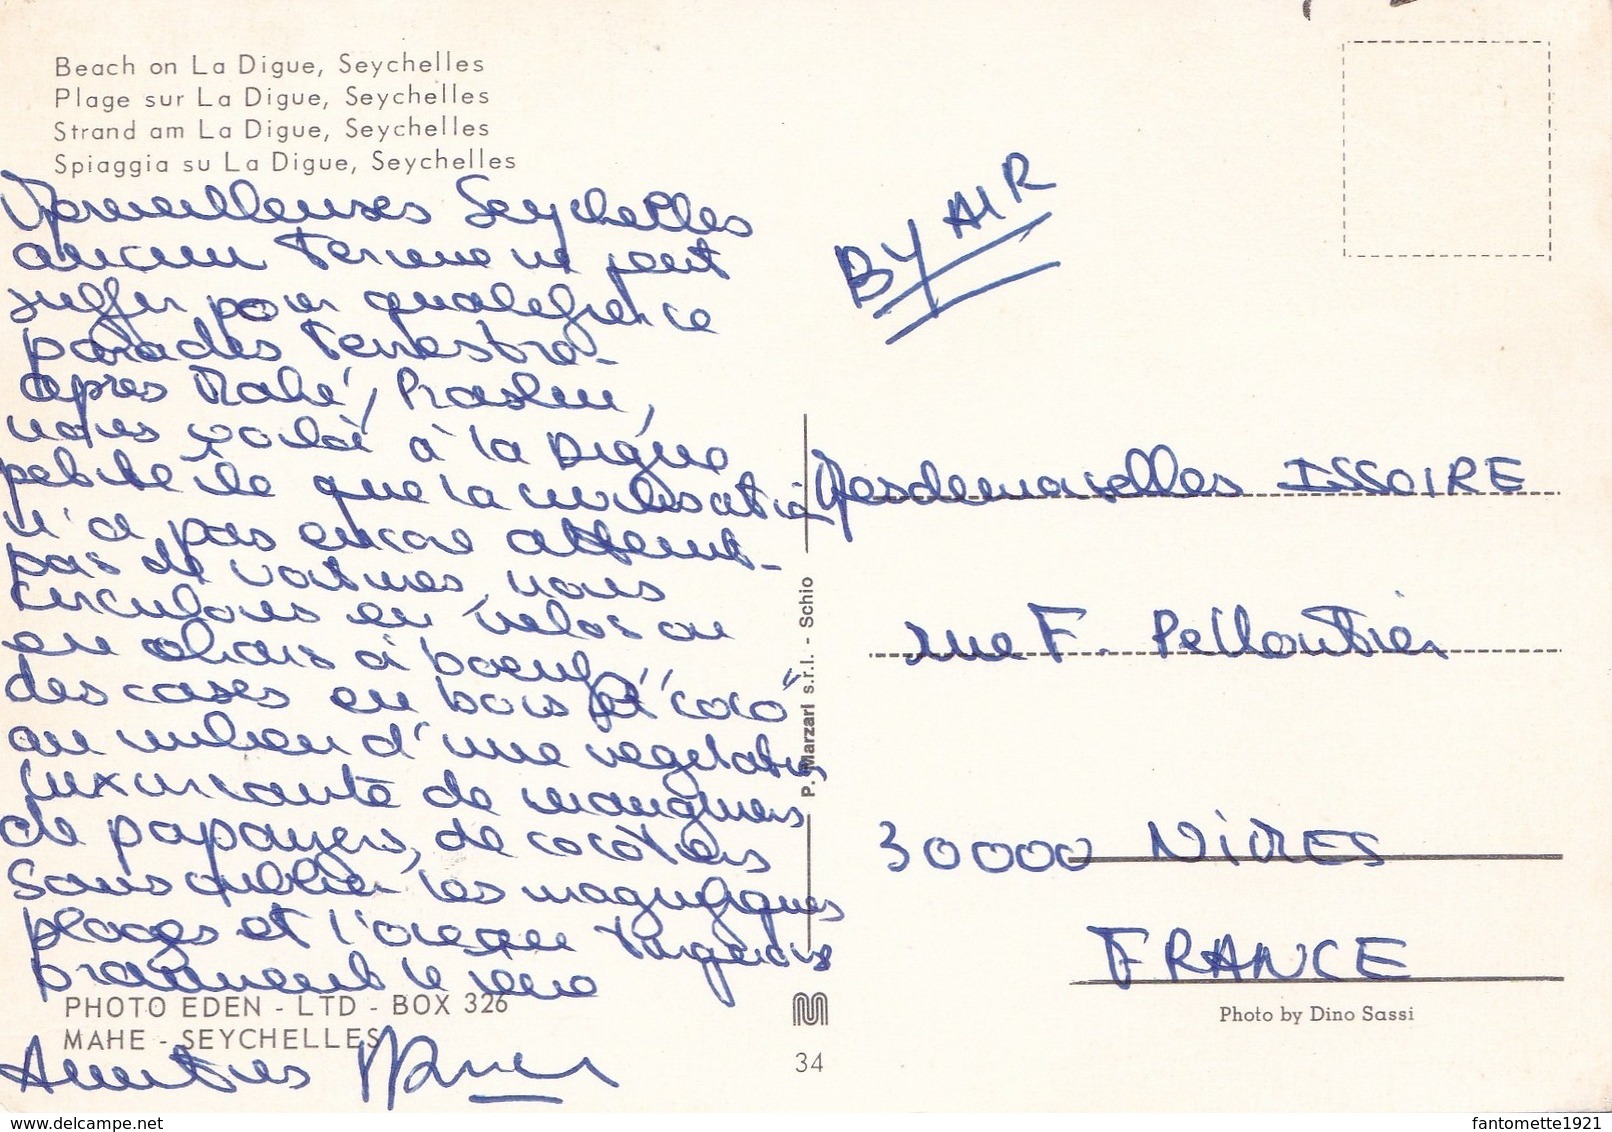 Beach on La Digue, Seychelles
Plage sur La Digue, Seychelles
Strand am La Digue, Seychelles
Spiaggia su La Digue, Seychelles
Merveilleuses Seychelles
aucun terme ne peut
suffir pour qualifier ce
paradis terrestre -
après Mahé, Praslin,
nous voilà à la Digue
petite île que la civilisation
n'a pas encore atteint -
pas de voitures, nous
circulons en vélos ou
en chars à boeufs
des cases en bois et "coco"
au milieu d'une vegetation
luxuriante de manguiers
de papayers, de cocotiers
sans oublier les magnifiques
plages et l'ocean turquoise
vraiment le reve
Amitiés
PHOTO EDEN - LTD - BOX 326
MAHE - SEYCHELLES
P. Marzari s.r.l. - Schio
34
BY AIR
Mesdemoiselles ISSOIRE
rue F. Pelloutier
30000 NIMES
FRANCE
Photo by Dino Sassi
www.delcampe.net
fantomette1921